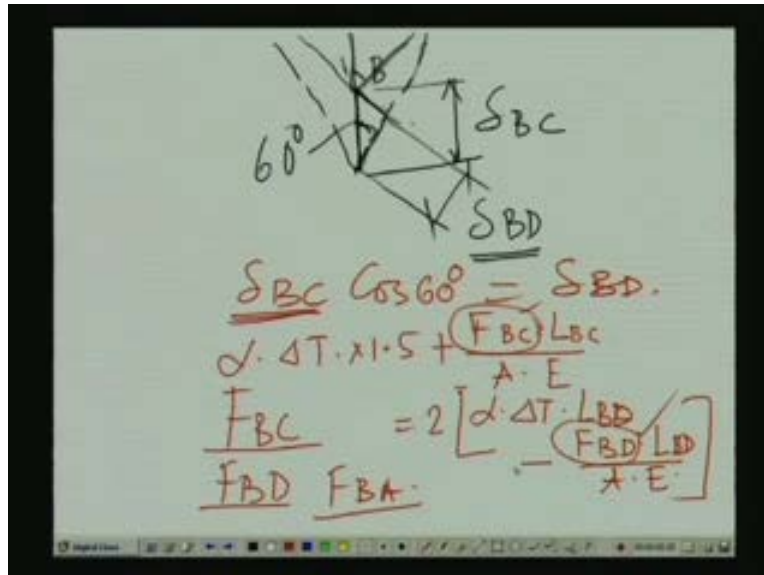 B
60°
δBC
δBD
δBC Cos60° = δBD.
α. ΔT. x1.5 + FBC. LBC
A. E
FBC = 2[α. ΔT. LBD
- FBD LBD]
FBD FBA. A. E.